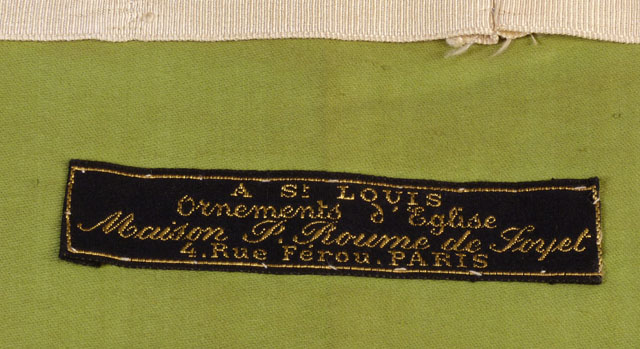 A St LOUIS
Ornements d'Eglise
Maison P. Roume de Soyet
4. Rue Ferou. PARIS